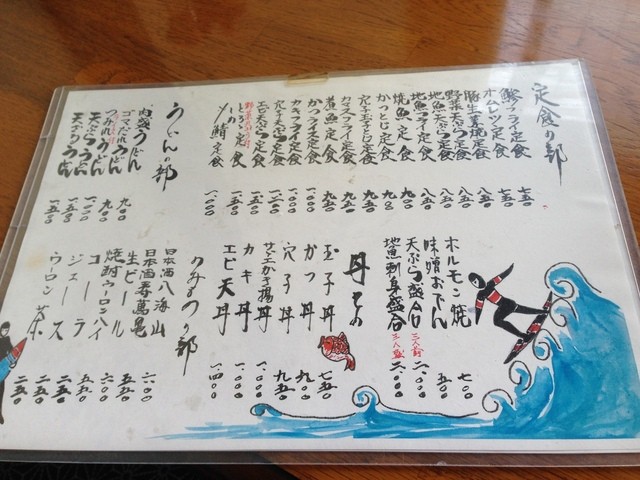 定食の部
鯵フライ定食 七五〇
オムレツ定食 七五〇
豚生姜焼定食 八五〇
野菜天ぷら定食 八五〇
地魚天ぷら定食 八五〇
地魚フライ定食 八五〇
焼魚定食 九〇〇
かつとじ定食
穴子玉子とじ定食 九五〇
カマスフライ定食 九五〇
煮魚定食 九五〇
かつフライ定食 一、〇〇〇
カキフライ定食 一、〇〇〇
穴子天ぷら定食 一、二〇〇
エビ天ぷら定食
定食
〆鯖定食 一、〇〇〇
うどんの部
肉盛うどん 九〇〇
ゴマだれうどん
つみれうどん
天ぷらうどん
うどん
ホルモン焼 七〇〇
味噌おでん 五〇〇
天ぷら盛合 二人前 二、〇〇〇
地魚刺身盛合 二、〇〇〇
丼もの
玉子丼 七五〇
かつ丼 九〇〇
穴子丼 九五〇
サザエかき揚丼 一、〇〇〇
カキ丼 一、〇〇〇
エビ天丼 一、四〇〇
のみものの部
日本酒八海山 六〇〇
日本酒寿萬亀 五五〇
生ビール 六〇〇
焼酎ウーロンハイ 五五〇
コーラ 二五〇
ジュース 二五〇
ウーロン茶 二五〇